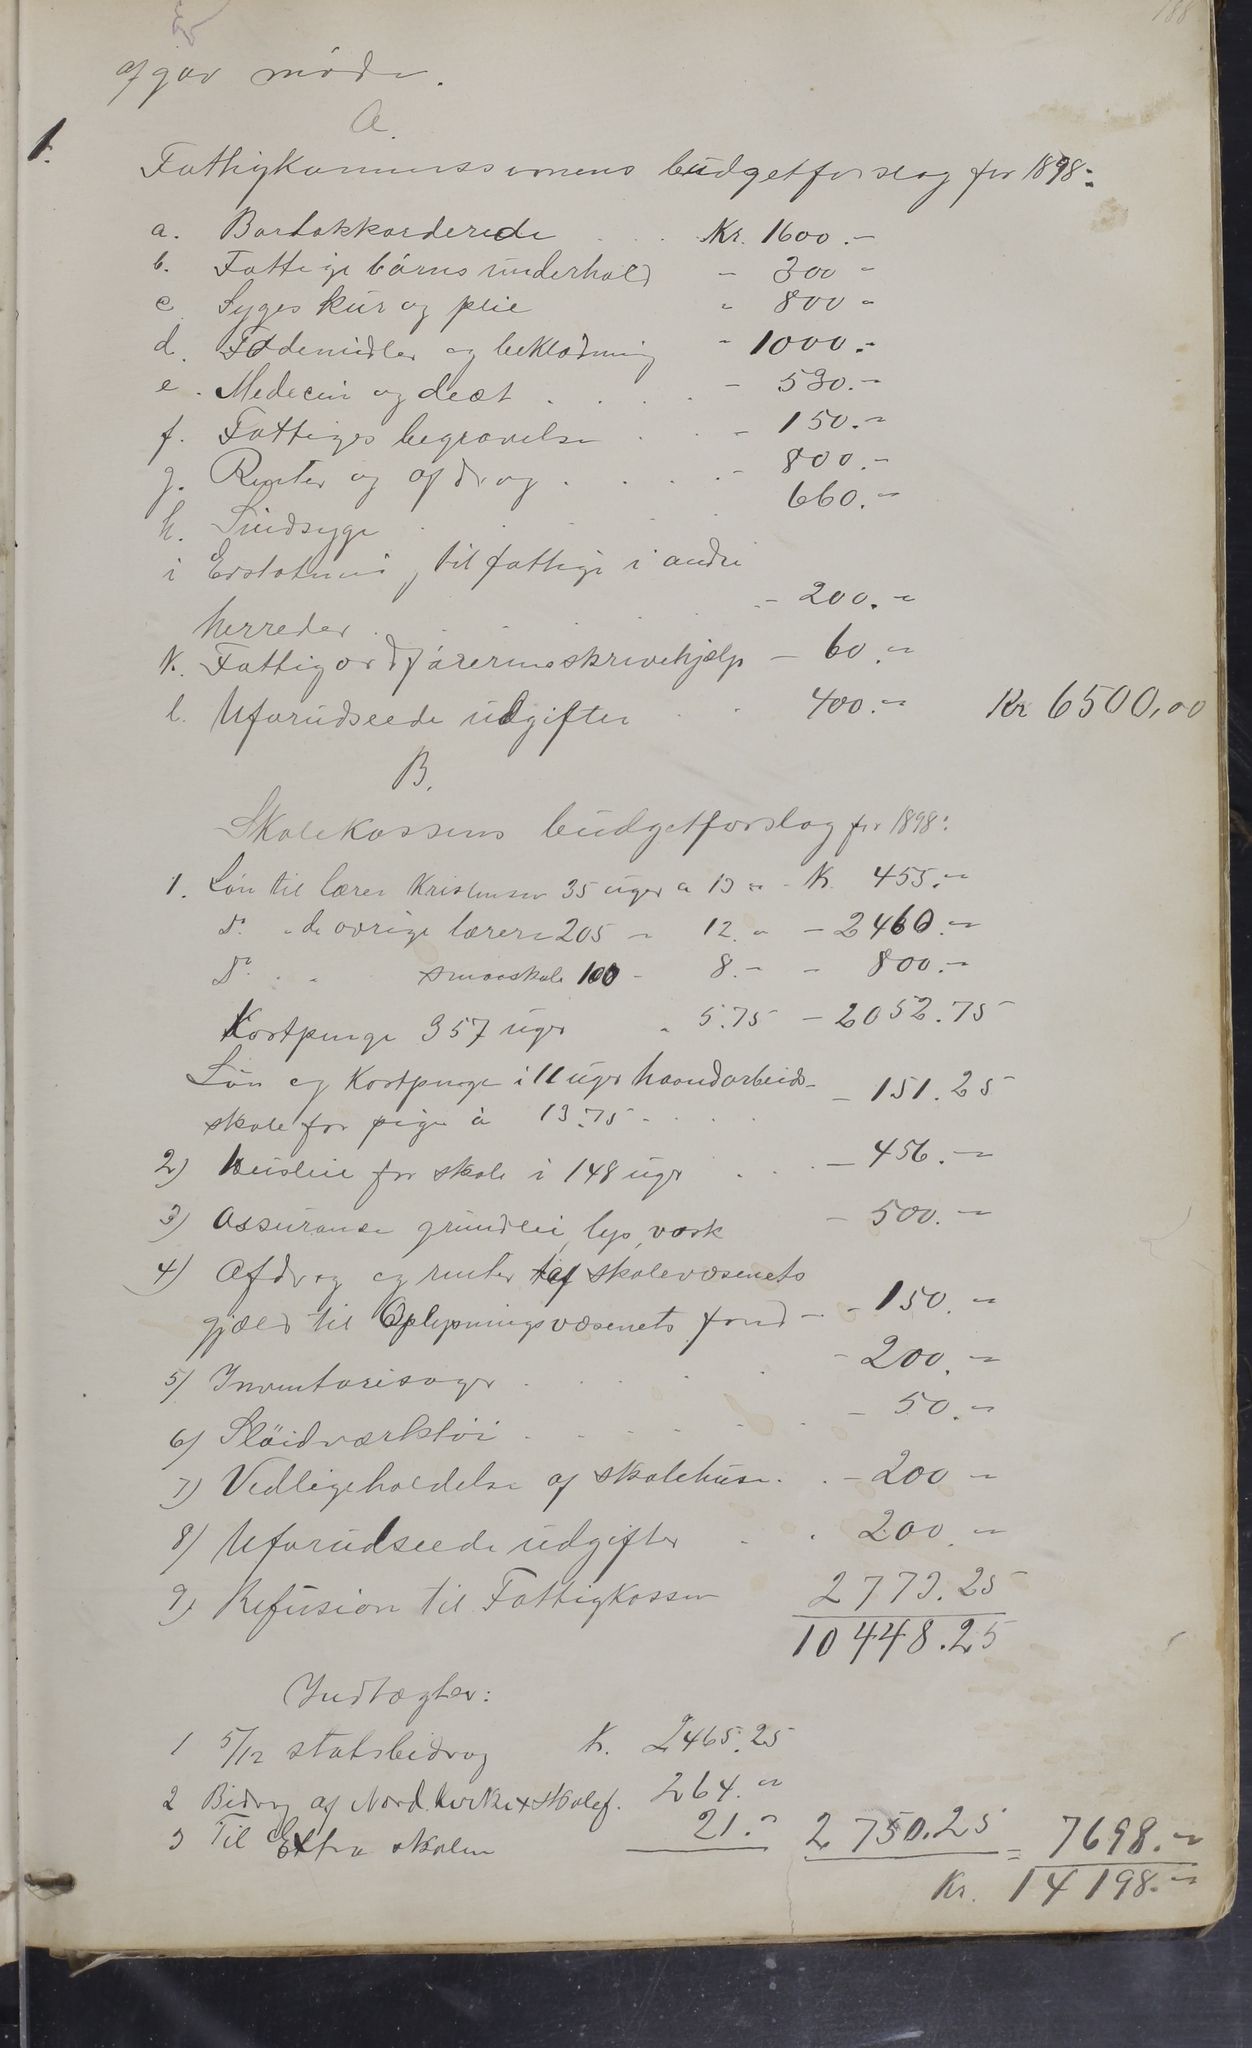 188
af gav møde.
A.
1.
Fattigkommissionens budgetforslag for 1898:
a. Bortakkorderede . . . Kr. 1600.-
b. Fattige børns underhold - 300 -
c. Syges kur og pleie " 800 "
d. Fødemidler og beklædning - 1000.-
e. Medecin og diæt . . . . - 530.-
f. Fattiges begravelse . . - 150.-
g. Renter og afdrag . . . . - 800.-
h. Sindsyge . . . . 660.-
i Erstatning til fattige i andre
herreder . . . - 200.-
k. Fattigordførerens skrivehjælp - 60.-
l. Uforudseede udgifter . . 400.- Kr 6500,00
B.
Skolekassens budgetforslag for 1898:
1. Løn til lærer Kristensen 35 uger a 13 " - Kr. 455.-
Do. " de øvrige lærere 205 - 12. " - 2460.-
Do. . " smaaskole 100 - 8.- - 800.-
Kostpenge 357 uger " 5.75 - 2052.75
Løn og Kostpenge i 11 uger haandarbeids-
skole for piger à 13.75 - . . . - 151.25
2) Husleie for skole i 148 uger . . . - 456.-
3) Assuranse grundleie, lys, vask - 500.-
4) Afdrag og renter af skolevæsenets
gjæld til Oplysningsvæsenets fond - - 150.-
5) Inventariesager . . . . . - 200.-
6) Sløidværktøi . . . . . . - 50.-
7) Vedligeholdelse af skolehuse . . - 200 -
8) Uforudseede udgifter . . 200.-
9) Refusion til Fattigkassen 2773.25
10448.25
Indtægter:
1 5/12 statsbidrag Kr. 2465.25
2 Bidrag af Nord. kirke & skolef. 264. "
3 Til Extra skolen 21.- 2750.25 = 7698.-
Kr. 14198.-